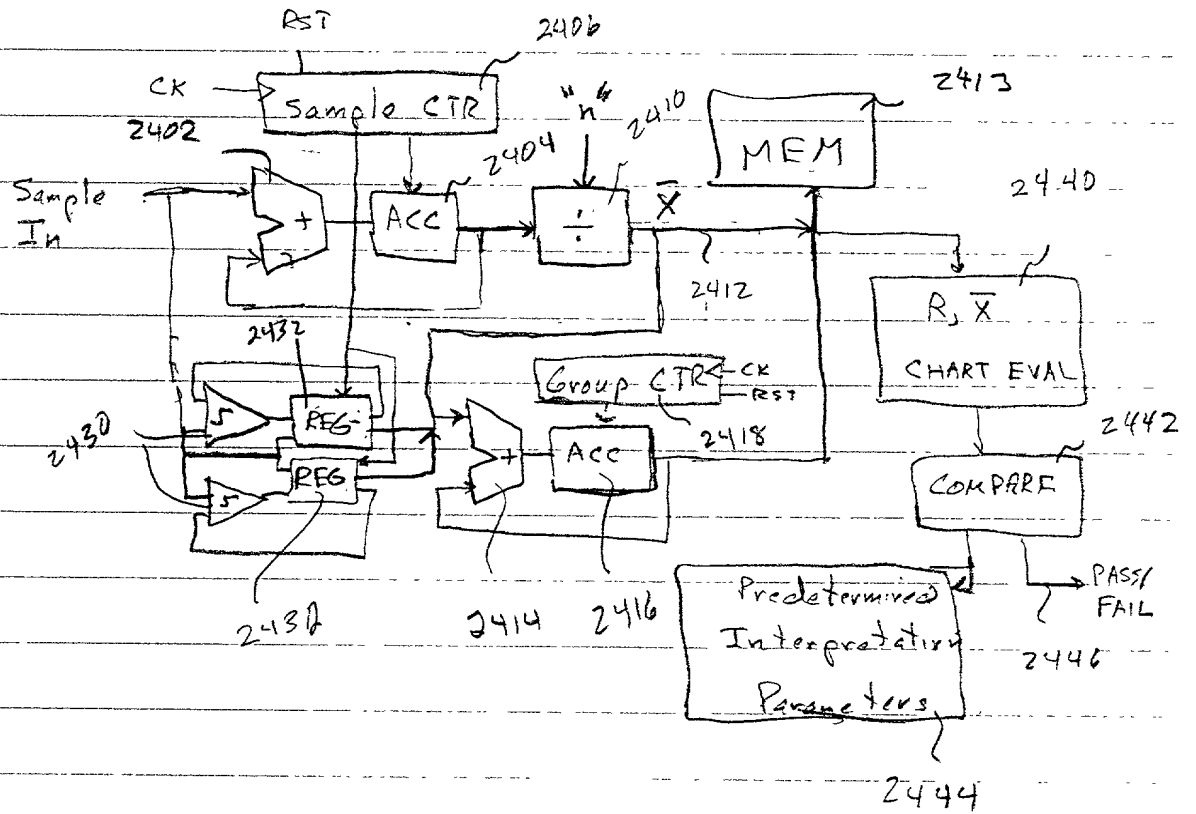 RST
2406
CK
Sample CTR
2402
"n"
2410
2413
MEM
2404
Sample
In
+
ACC
÷
X̅
2440
2412
R, X̅
CHART EVAL
2432
Group CTR
CK
RST
2418
REG
2430
REG
+
ACC
2442
COMPARE
2432
2414
2416
Predetermined
Interpretation
Parameters
PASS/
FAIL
2446
2444